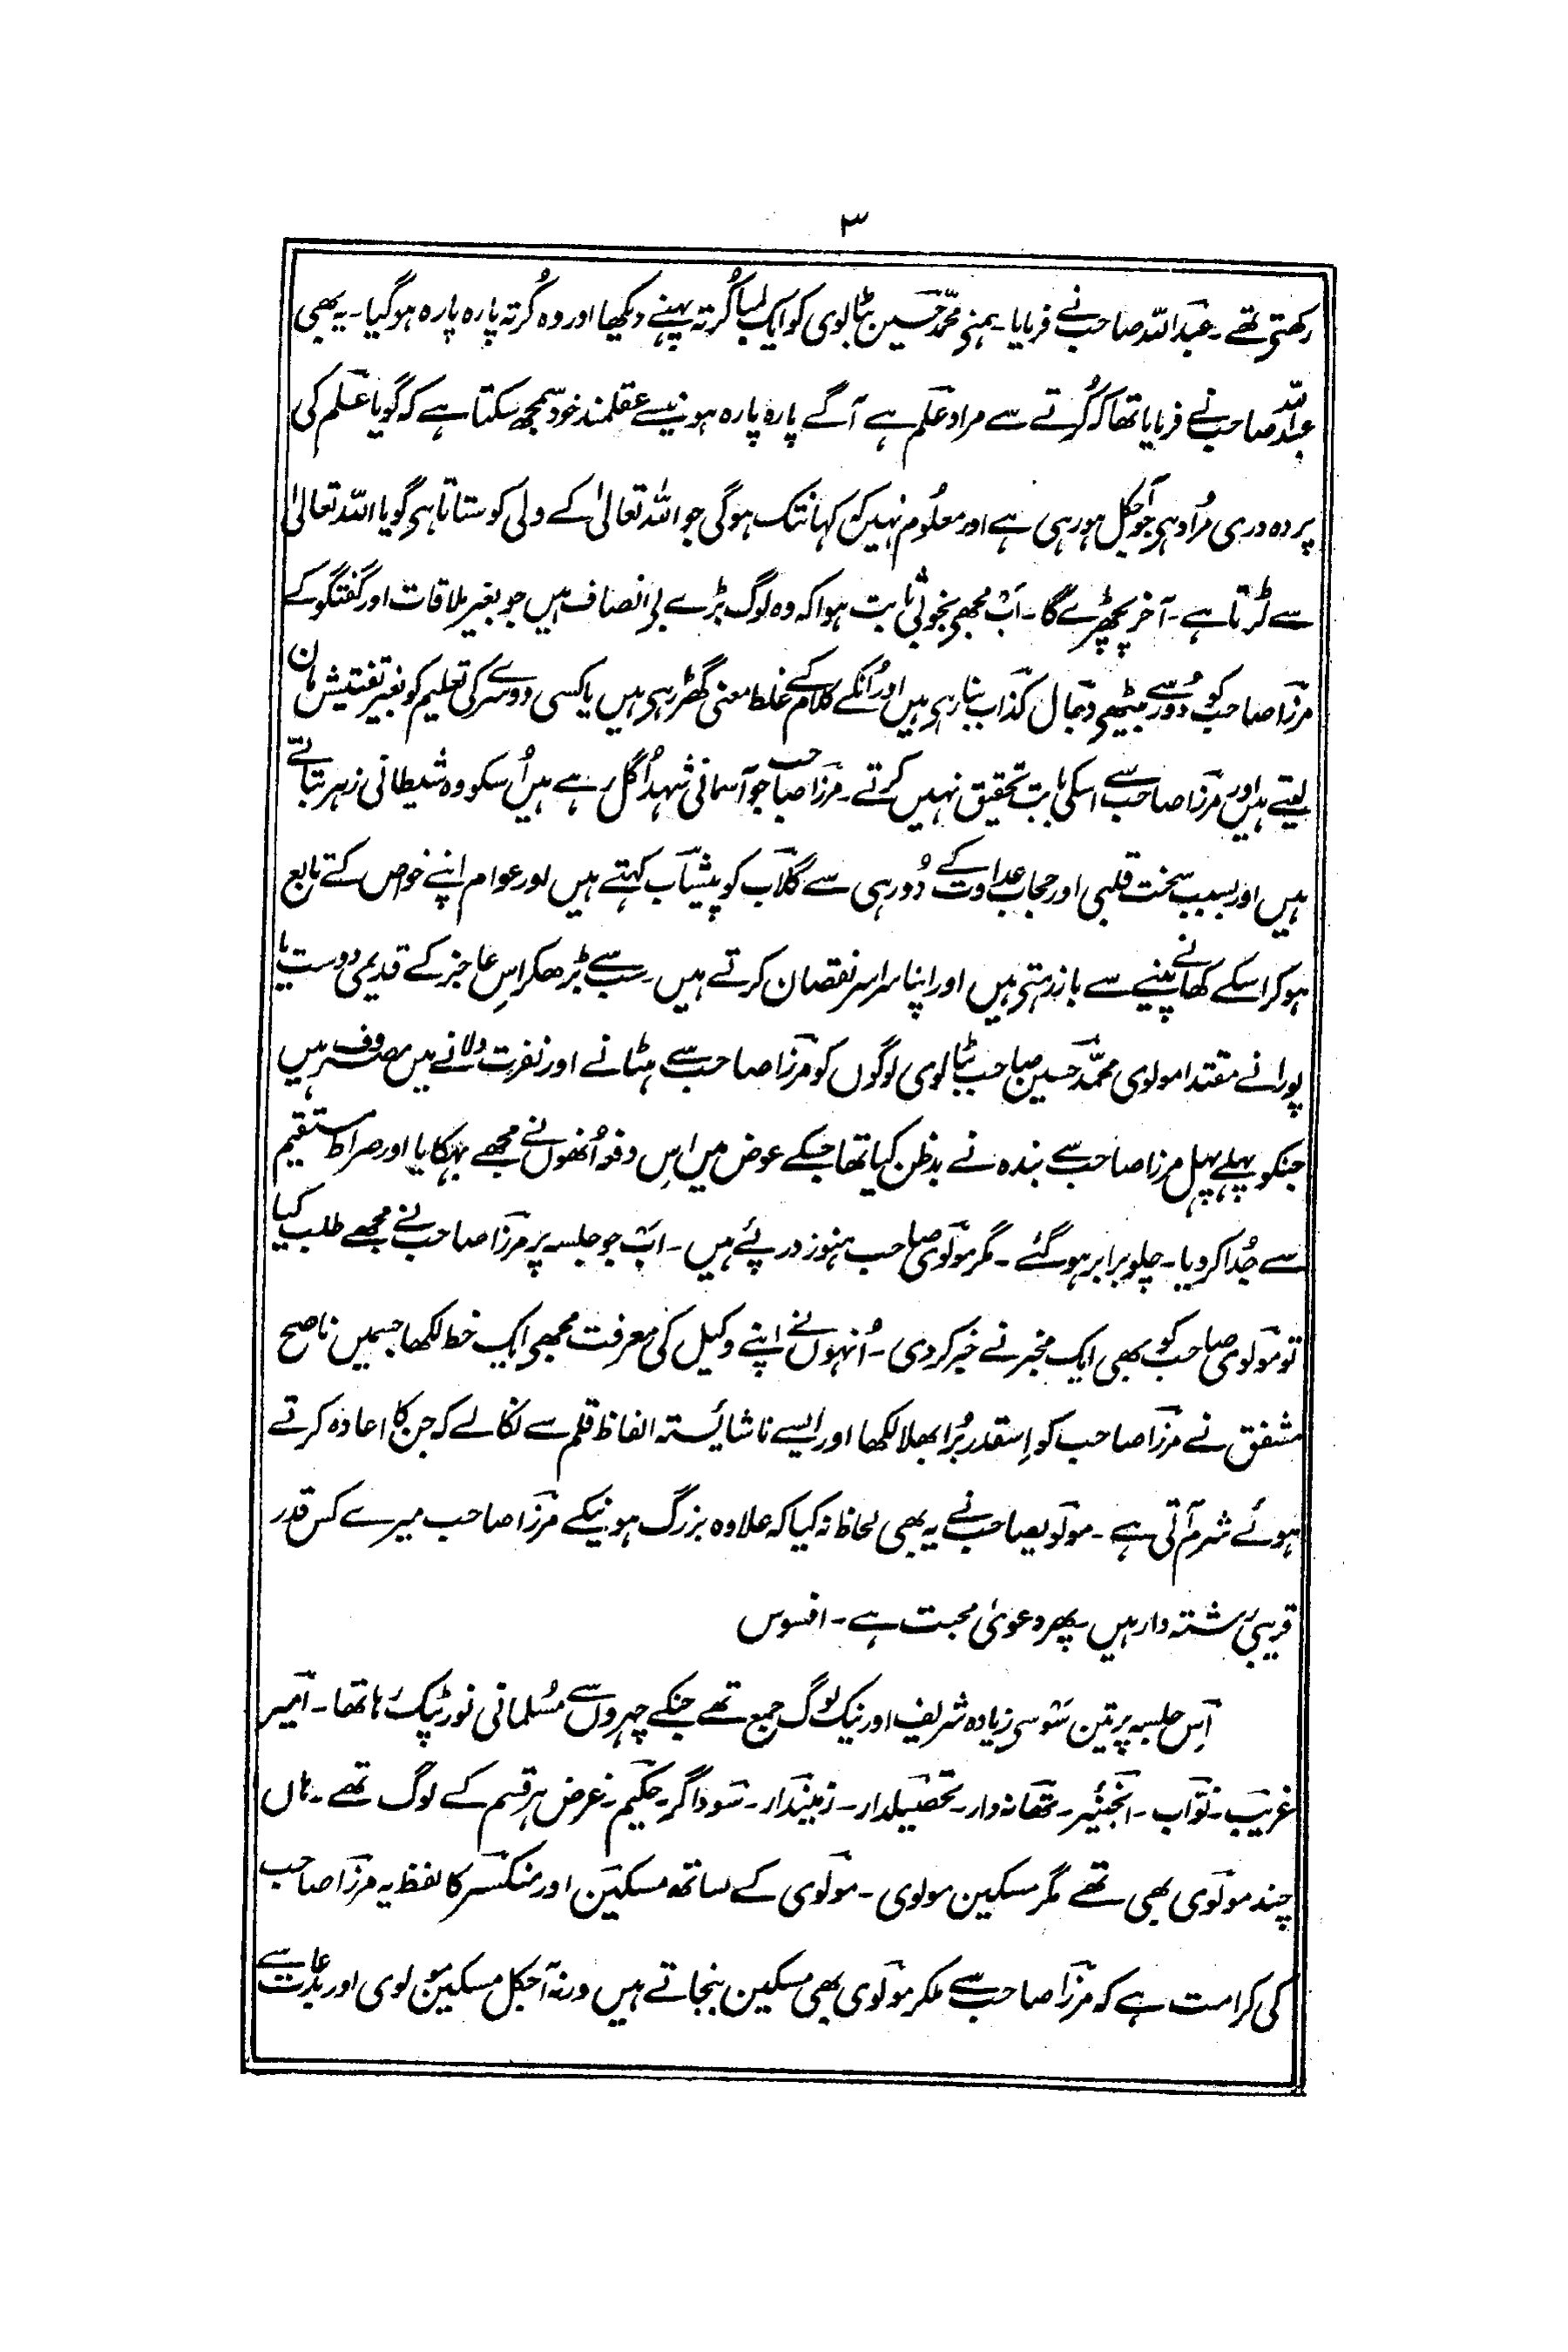 ۳
رکھتی تھے۔ عبداللہ صاحب نے فرمایا۔ ہمنی محمد حسین بٹالوی کو ایک لمبا کُرتہ پہنے دیکھا اور وہ کُرتہ پارہ پارہ ہوگیا۔ یہ بھی
عبداللہ صاحب نے فرمایا تھا کہ کُرتے سے مراد علم ہے آگے پارہ پارہ ہونیسے عقلمند خود سمجھ سکتا ہے کہ گویا علم کی
پردہ دری مُراد ہی جو آجکل ہورہی ہے اور معلُوم نہیں کہ کہانتک ہوگی جو اللہ تعالیٰ کے ولی کو ستاتا ہی گویا اللہ تعالیٰ
سے لڑتا ہے۔ آخر پچھڑے گا۔ اب مجھی بخوبی ثابت ہوا کہ وہ لوگ بڑے بے انصاف ہیں جو بغیر ملاقات اور گفتگو کے
مرزا صاحب کو دُور سے بیٹھی دجال کذاب بنا رہی ہیں اور اُنکے کلام کے غلط معنی گھڑ رہی ہیں یا کسی دوسرے کی تعلیم کو بغیر تفتیش مان
لیتے ہیں اور مرزا صاحب سے اسکی بابت تحقیق نہیں کرتے۔ مرزا صاحب جو آسمانی شہد اُگل رہے ہیں اُسکو وہ شیطانی زہر بتاتے
ہیں اور بسبب سخت قلبی اور حجاب عداوت کے دُور ہی سے گلاب کو پیشاب کہتے ہیں اور عوام اپنے خواص کے تابع
ہوکر اسکے کھانے پینے سے باز رہتی ہیں اور اپنا سراسر نقصان کرتے ہیں۔ سب سے بڑھکر اِس عاجز کے قدیمی دوست یا
پورانے مقتدا مولوی محمد حسین صاحب بٹالوی لوگوں کو مرزا صاحب سے ہٹانے اور نفرت دلانے میں مصروف ہیں
جنکو پہلے پہل مرزا صاحب سے بندہ نے بدظن کیا تھا جسکے عوض میں اِس دفعہ اُنھوں نے مجھے بہکایا اور صراط مستقیم
سے جُدا کردیا۔ چلو برابر ہوگئے۔ مگر مولوی صاحب ہنوز درپئے ہیں۔ اب جو جلسہ پر مرزا صاحب نے مجھے طلب کیا
تو مولوی صاحب کو بھی ایک مخبر نے خبر کردی۔ اُنہوں نے اپنے وکیل کی معرفت مجھی ایک خط لکھا جسمیں ناصح
مشفق نے مرزا صاحب کو اِسقدر بُرا بھلا لکھا اور ایسے ناشائستہ الفاظ قلم سے نکالے کہ جن کا اعادہ کرتے
ہوئے شرم آتی ہے۔ مولویصاحب نے یہ بھی لحاظ نہ کیا کہ علاوہ بزرگ ہونیکے مرزا صاحب میرے کس قدر
قریبی رشتہ دار ہیں۔ پھر دعویٰ محبت ہے۔ افسوس
اِس جلسہ پر تین سو سی زیادہ شریف اور نیک لوگ جمع تھے جنکے چہروں سے مُسلمانی نور ٹپک رہا تھا۔ امیر
غریب۔ نواب۔ انجنئیر۔ تھانہ دار۔ تحصیلدار۔ زمیندار۔ سوداگر۔ حکیم۔ غرض ہر قسم کے لوگ تھے۔ ہاں
چند مولوی بھی تھے مگر مسکین مولوی۔ مولوی کے ساتھ مسکین اور منکسر کا لفظ یہ مرزا صاحب
کی کرامت ہے کہ مرزا صاحب سے ملکر مولوی بھی مسکین بنجاتے ہیں ورنہ آجکل مسکین مولوی اور بدعات سے